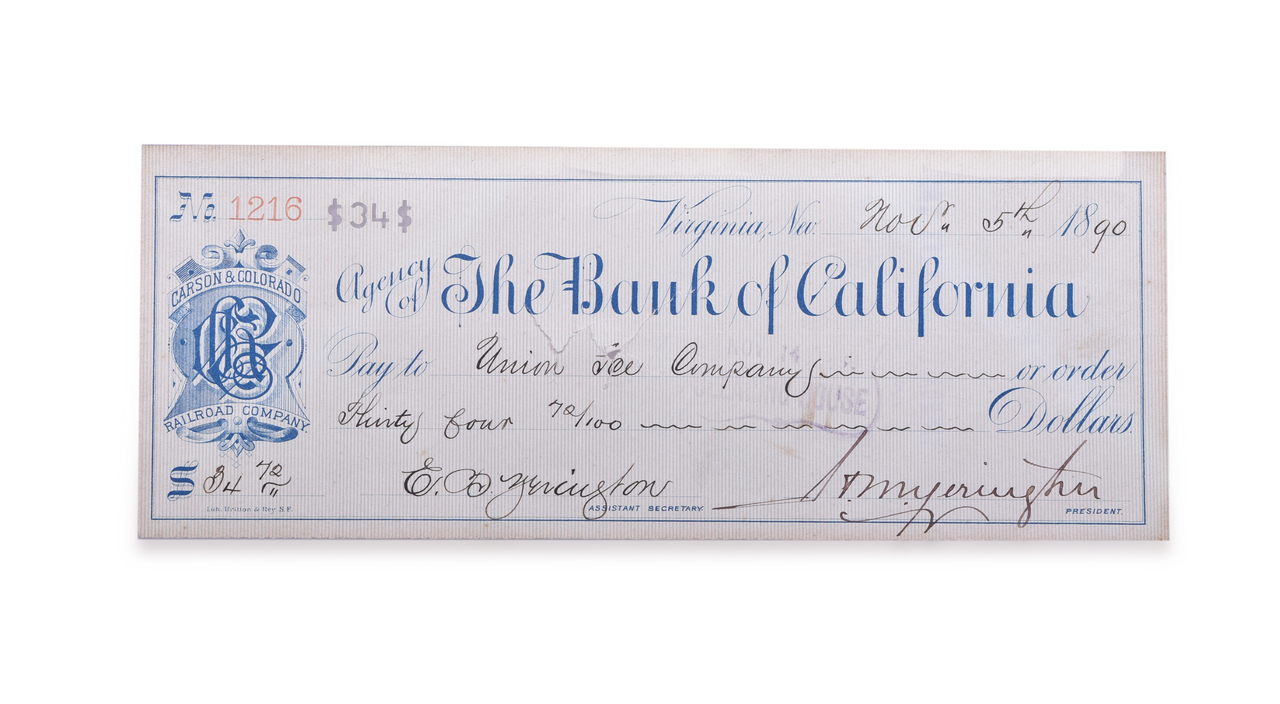 No. 1216 $34$ Virginia, Nev. Novr 5th 1890
CARSON & COLORADO
RAILROAD COMPANY.
Agency of The Bank of California
Pay to Union Ice Company or order
Thirty four 72/100 Dollars.
$ 34 72
E. B Yerington H M Yerington
Lith. Britton & Rey S.F. ASSISTANT SECRETARY. PRESIDENT.